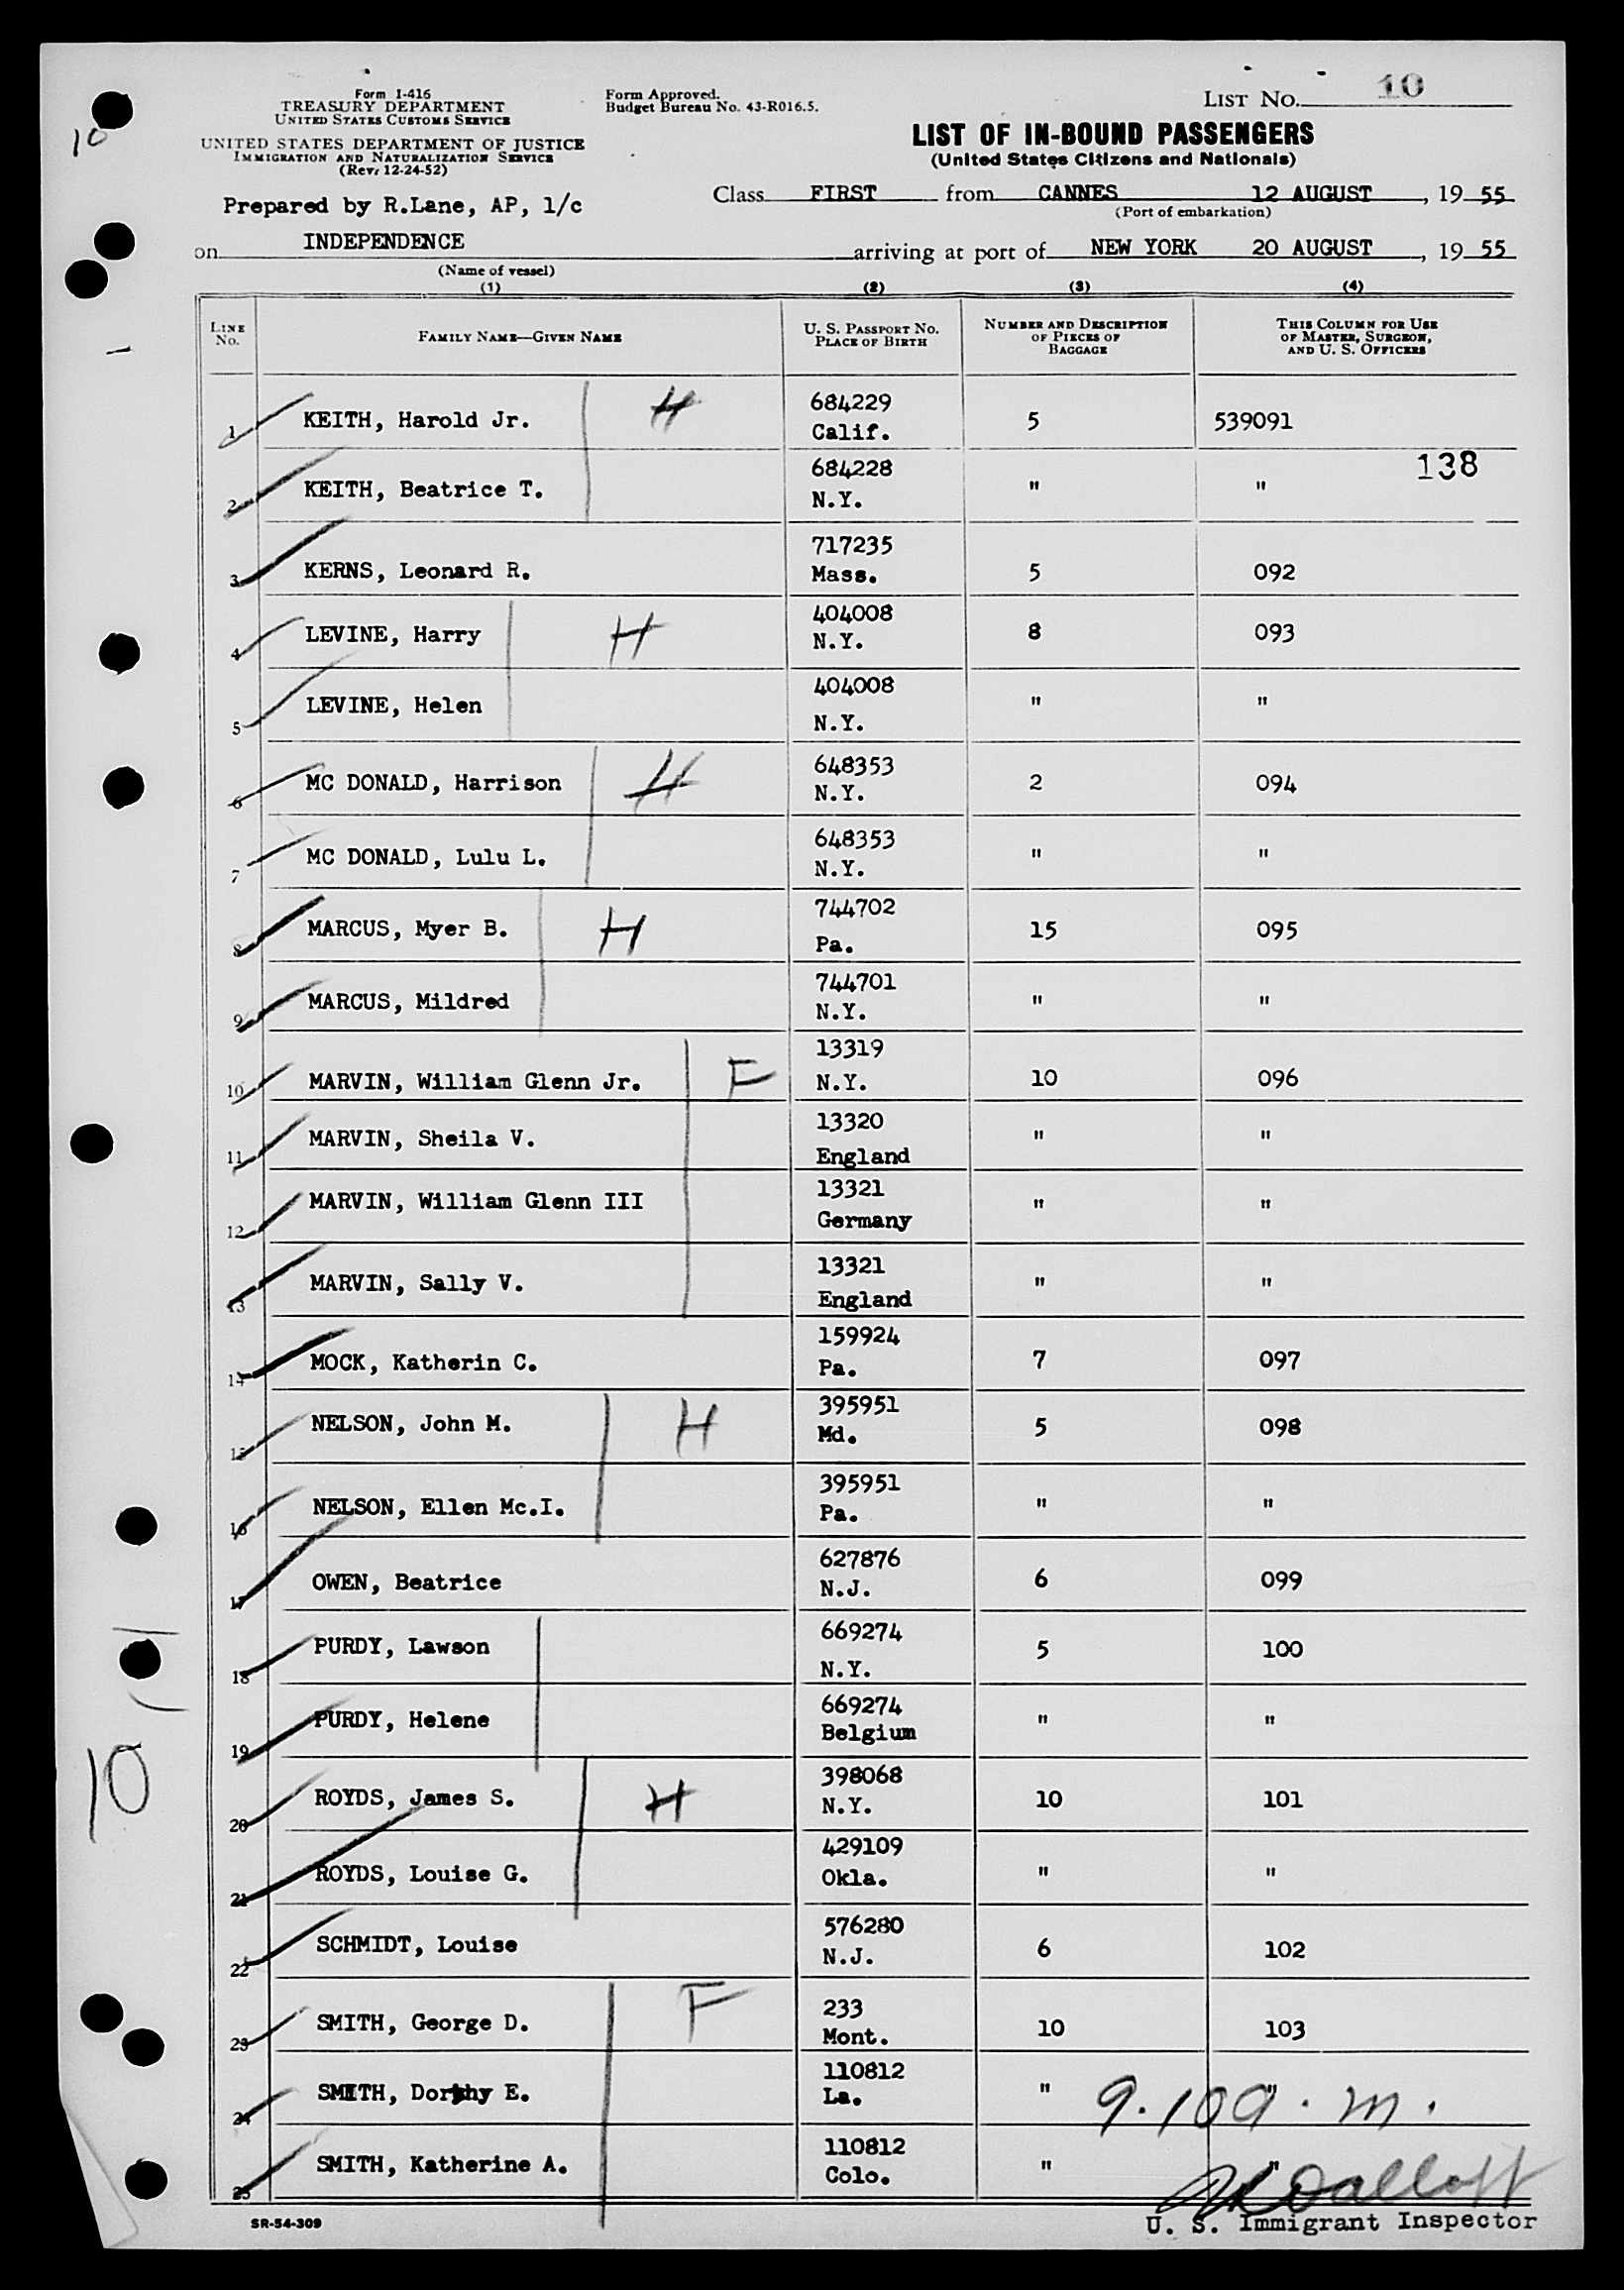 Form I-416
TREASURY DEPARTMENT
UNITED STATES CUSTOMS SERVICE
UNITED STATES DEPARTMENT OF JUSTICE
IMMIGRATION AND NATURALIZATION SERVICE
(Rev. 12-24-52)
Form Approved.
Budget Bureau No. 43-R016.5.
LIST No. 10
10
LIST OF IN-BOUND PASSENGERS
(United States Citizens and Nationals)
Prepared by R.Lane, AP, 1/c
Class FIRST from CANNES 12 AUGUST, 19 55
(Port of embarkation)
on INDEPENDENCE arriving at port of NEW YORK 20 AUGUST, 19 55
(Name of vessel)
(1) (2) (3) (4)
LINE No. FAMILY NAME—GIVEN NAME U. S. PASSPORT No. PLACE OF BIRTH NUMBER AND DESCRIPTION OF PIECES OF BAGGAGE THIS COLUMN FOR USE OF MASTER, SURGEON, AND U. S. OFFICERS
1 KEITH, Harold Jr. H 684229 Calif. 5 539091
138
2 KEITH, Beatrice T. 684228 N.Y. " "
3 KERNS, Leonard R. 717235 Mass. 5 092
4 LEVINE, Harry H 404008 N.Y. 8 093
5 LEVINE, Helen 404008 N.Y. " "
6 MC DONALD, Harrison H 648353 N.Y. 2 094
7 MC DONALD, Lulu L. 648353 N.Y. " "
8 MARCUS, Myer B. H 744702 Pa. 15 095
9 MARCUS, Mildred 744701 N.Y. " "
10 MARVIN, William Glenn Jr. F 13319 N.Y. 10 096
11 MARVIN, Sheila V. 13320 England " "
12 MARVIN, William Glenn III 13321 Germany " "
13 MARVIN, Sally V. 13321 England " "
14 MOCK, Katherin C. 159924 Pa. 7 097
15 NELSON, John M. H 395951 Md. 5 098
16 NELSON, Ellen Mc.I. 395951 Pa. " "
17 OWEN, Beatrice 627876 N.J. 6 099
18 PURDY, Lawson 669274 N.Y. 5 100
19 PURDY, Helene 669274 Belgium " "
10
20 ROYDS, James S. H 398068 N.Y. 10 101
21 ROYDS, Louise G. 429109 Okla. " "
22 SCHMIDT, Louise 576280 N.J. 6 102
23 SMITH, George D. F 233 Mont. 10 103
24 SMITH, Dorthy E. 110812 La. " "
25 SMITH, Katherine A. 110812 Colo. " "
SR-54-309
U. S. Immigrant Inspector